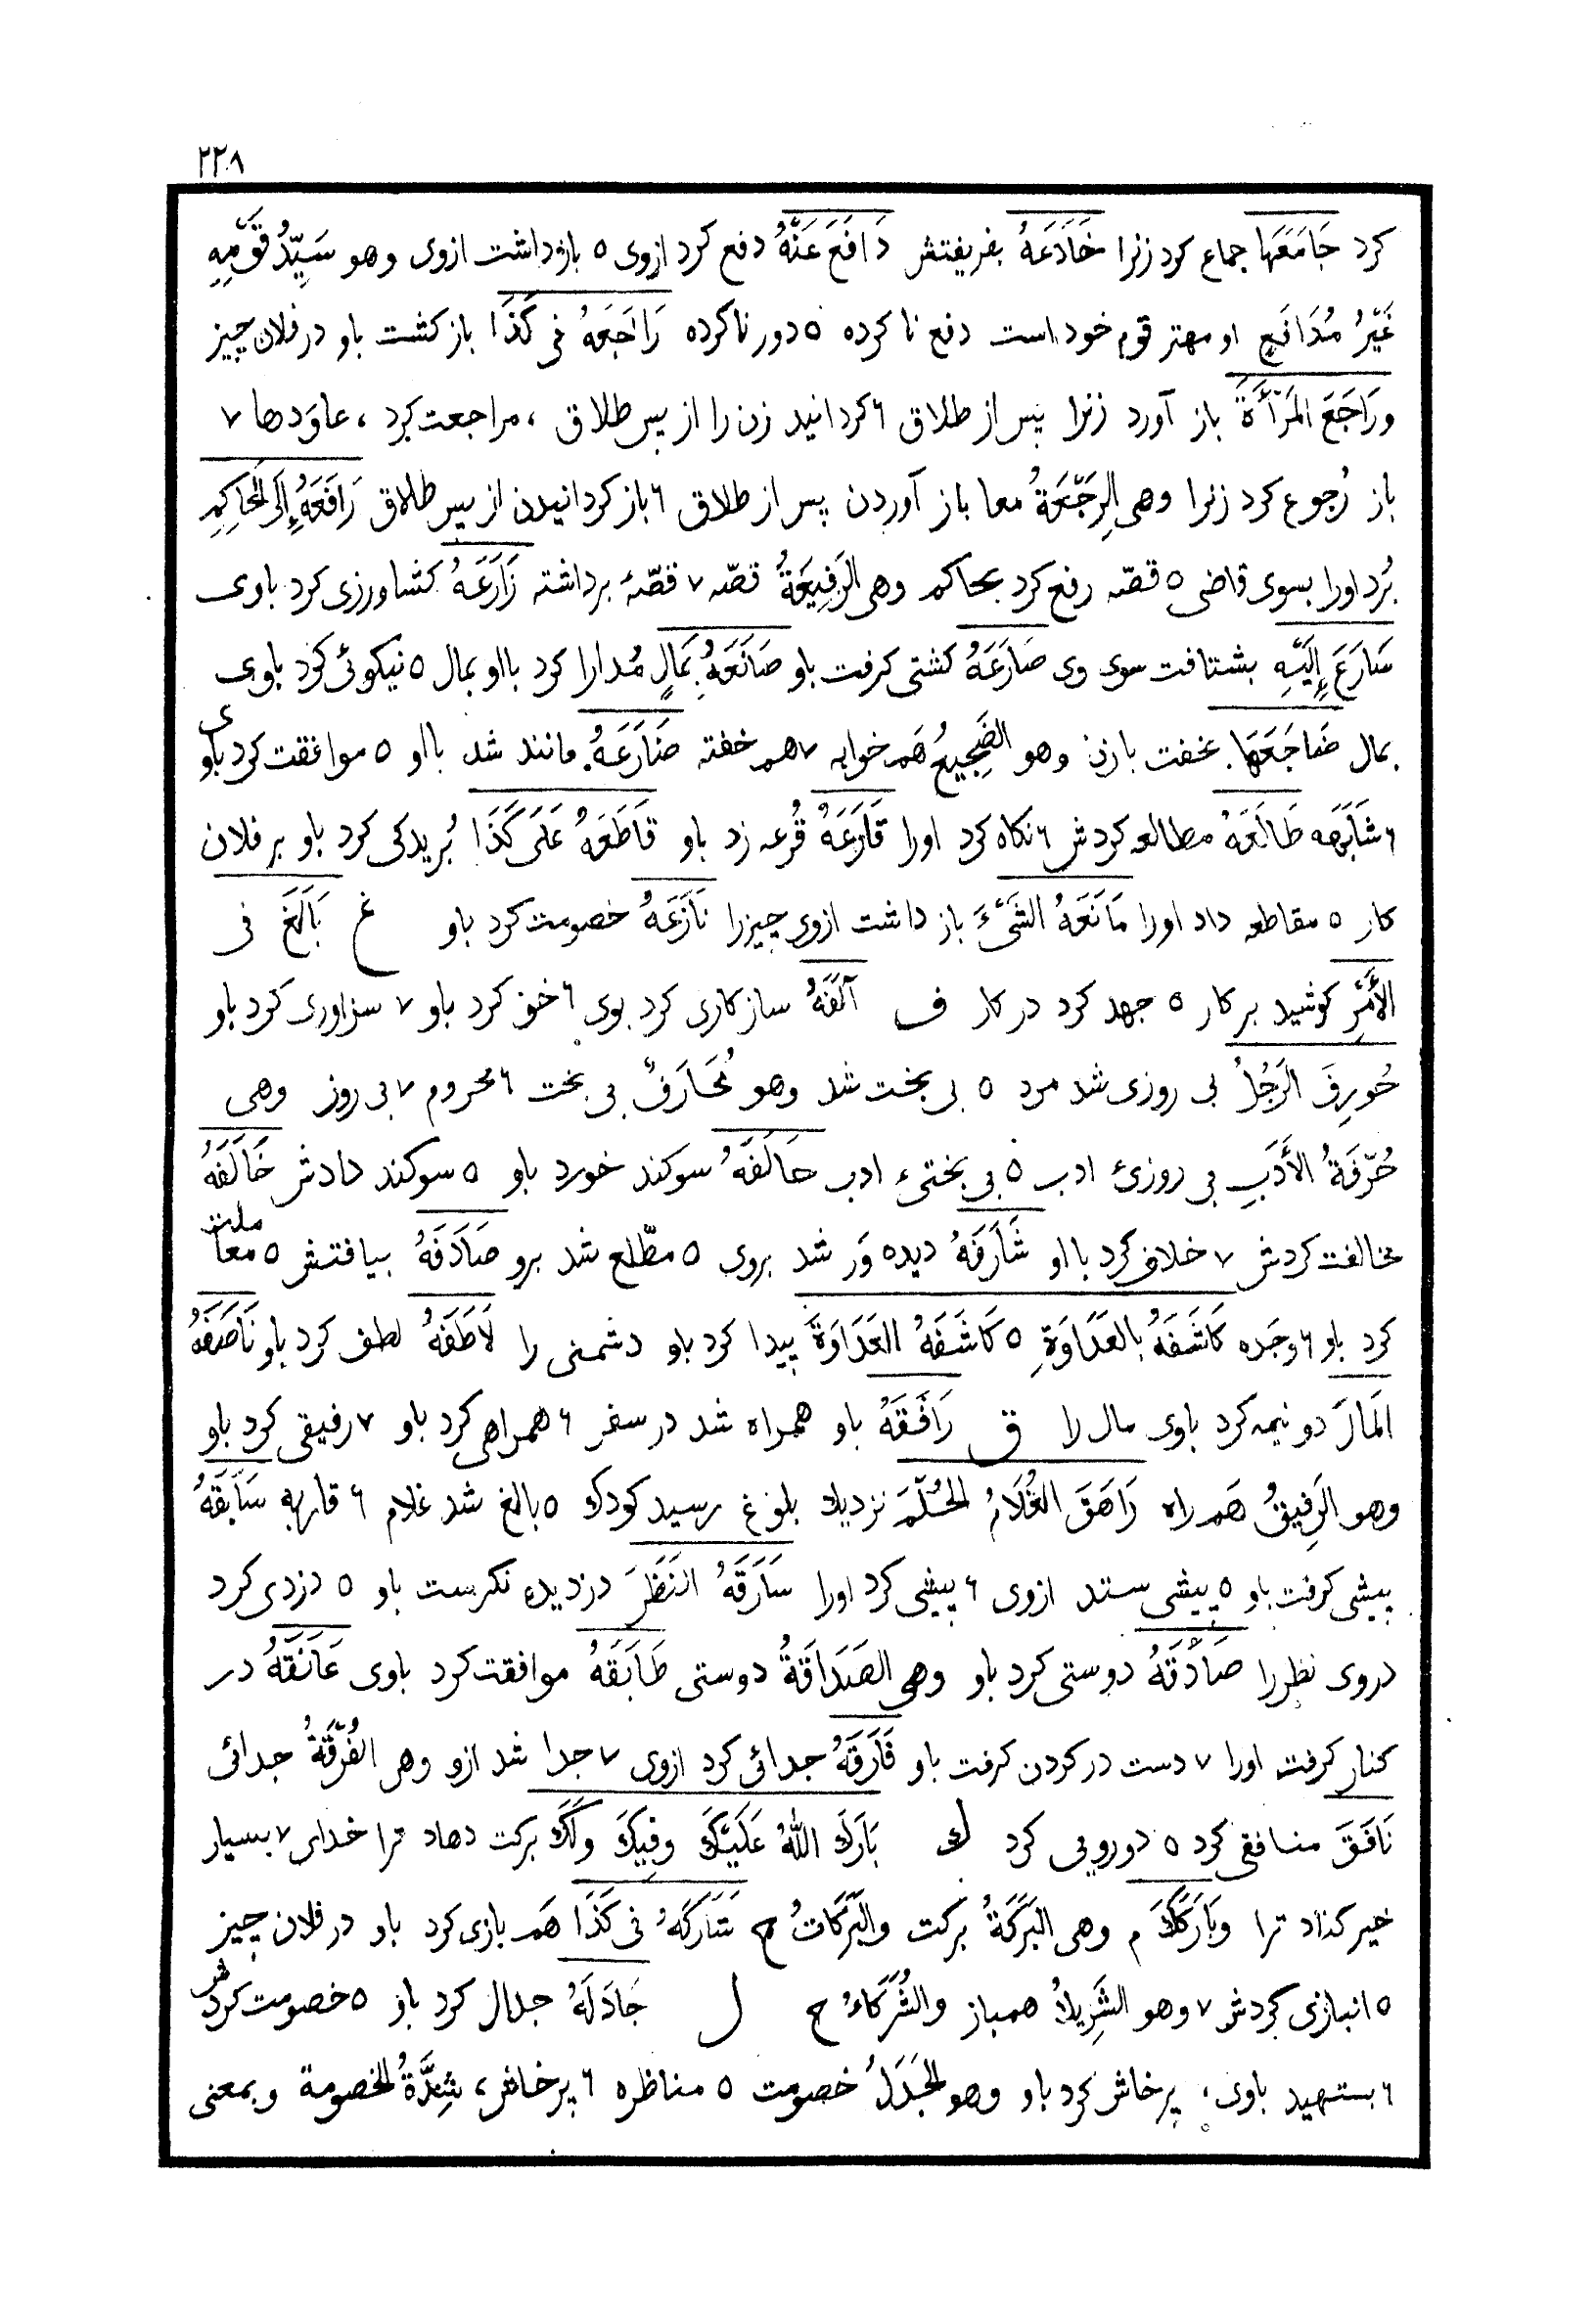 ٢٢٨
كرد جَامَعَها جماع كرد زنرا خَادَعَهُ بفريفتش دَافَعَ عَنْهُ دفع كرد ازوى ٥ بازداشت ازوى وهو سَيِّدُ قَوْمِهِ
غَيْرُ مُدَافَعٍ او مهتر قوم خود است دفع نا كرده ٥ دور ناكرده رَاجَعَهُ فى كَذَا باز كشت باو در فلان چيز
ورَاجَعَ المَرْأَةَ باز آورد زنرا پس از طلاق ٦ كردانيد زن را از پس طلاق ، مراجعت كرد ، عاوَدها ٧
باز رُجوع كرد زنرا وهى الرَِجْعَةُ معا باز آوردن پس از طلاق ٦ باز كردانيدن از پس طلاق رَافَعَهُ إِلَى الحَاكِمِ
بُرد اورا بسوى قاضى ٥ قصّه رفع كرد بحاكم وهى الرَفِيعَةُ قصّه ٧ قصّهٔ برداشته زَارَعَهُ كشاورزى كرد باوى
سَارَعَ إِلَيْهِ بشتافت سوى وى صَارَعَهُ كشتى كرفت باو صَانَعَهُ بِمَالٍ مُدارا كرد بااو بمال ٥ نيكوئى كرد باوى
بمال ضَاجَعَهَا بخفت با زن وهو الضَجِيعُ هَم خوابه ٧ هم خفته ضَارَعَهُ مانند شد بااو ٥ موافقت كرد باوى
٦ شَابَهَه طَالَعَهُ مطالعه كردش ٦ نكاه كرد اورا قَارَعَهُ قُرعه زد باو قَاطَعَهُ عَلَى كَذَا بُريدكى كرد باو بر فلان
كار ٥ مقاطعه داد اورا مَانَعَهُ الشَىْءَ باز داشت ازوى چيزرا نَازَعَهُ خصومت كرد باو غ بَالَغَ فى
الأَمْرِ كوشيد بر كار ٥ جهد كرد در كار ف آلَفَهُ سازكارى كرد بوى ٦ خو كرد باو ٧ سزاورى كرد باو
حُورِفَ الرَجُلُ بى روزى شد مرد ٥ بى بخت شد وهو مُحَارَفٌ بى بخت ٦ محروم ٧ بى روز وهى
حُرْفَةُ الأَدَبِ بى روزئ ادب ٥ بى بختىء ادب حَالَفَهُ سوكند خورد باو ٥ سوكند دادش خَالَفَهُ
مخالفت كردش ٧ خلاف كرد بااو شَارَفَهُ ديده وَر شد بروى ٥ مطّلع شد برو صَادَفَهُ بيافتش ٥ معاملت
كرد باو ٦ وجَده كَاشَفَهُ بالعَدَاوَةِ ٥ كَاشَفَهُ العَدَاوَةَ پيدا كرد باو دشمنى را لَاطَفَهُ لطف كرد باو نَاصَفَهُ
المَالَ دو نيمه كرد باوى مال را ق رَافَقَهُ باو همراه شد در سفر ٦ همراهى كرد باو ٧ رفيقى كرد باو
وهو الرَفِيقُ هَم راه رَاهَقَ الغُلَامُ الحُلْمَ نزديك بلوغ رسيد كودك ٥ بالغ شد غلام ٦ قاربه سَابَقَهُ
پيشى كرفت باو ٥ پيشى ستد ازوى ٦ پيشى كرد اورا سَارَقَهُ النَظَرَ دزديده نكرست باو ٥ دزدى كرد
دروى نظررا صَادَقَهُ دوستى كرد باو وهى الصَدَاقَةُ دوستى طَابَقَهُ موافقت كرد باوى عَانَقَهُ در
كنار كرفت اورا ٧ دست در كردن كرفت باو فَارَقَهُ جدائى كرد ازوى ٧ جدا شد ازو وهى الفُرْقَةُ جدائى
نَافَقَ منافقى كرد ٥ دورويى كرد ك بَارَكَ اللهُ عَلَيْكَ وفِيكَ ولَكَ بركت دهاد ترا خداى ٧ بسيار
خير كناد ترا وبَارَكَكَ م وهى البَرَكَةُ بركت والبَرَكَاتُ ج شَارَكَهُ فى كَذَا هَم بازى كرد باو در فلان چيز
٥ انبازى كردش ٧ وهو الشَرِيكُ همباز والشُرَكَاءُ ج ل جَادَلَهُ جدال كرد باو ٥ خصومت كردش
٦ بستهيد باوى ، پرخاش كرد باو وهو الجَدَلُ خصومت ٥ مناظره ٦ پرخاش ، شِدَّةُ الخصومة وبمعنى